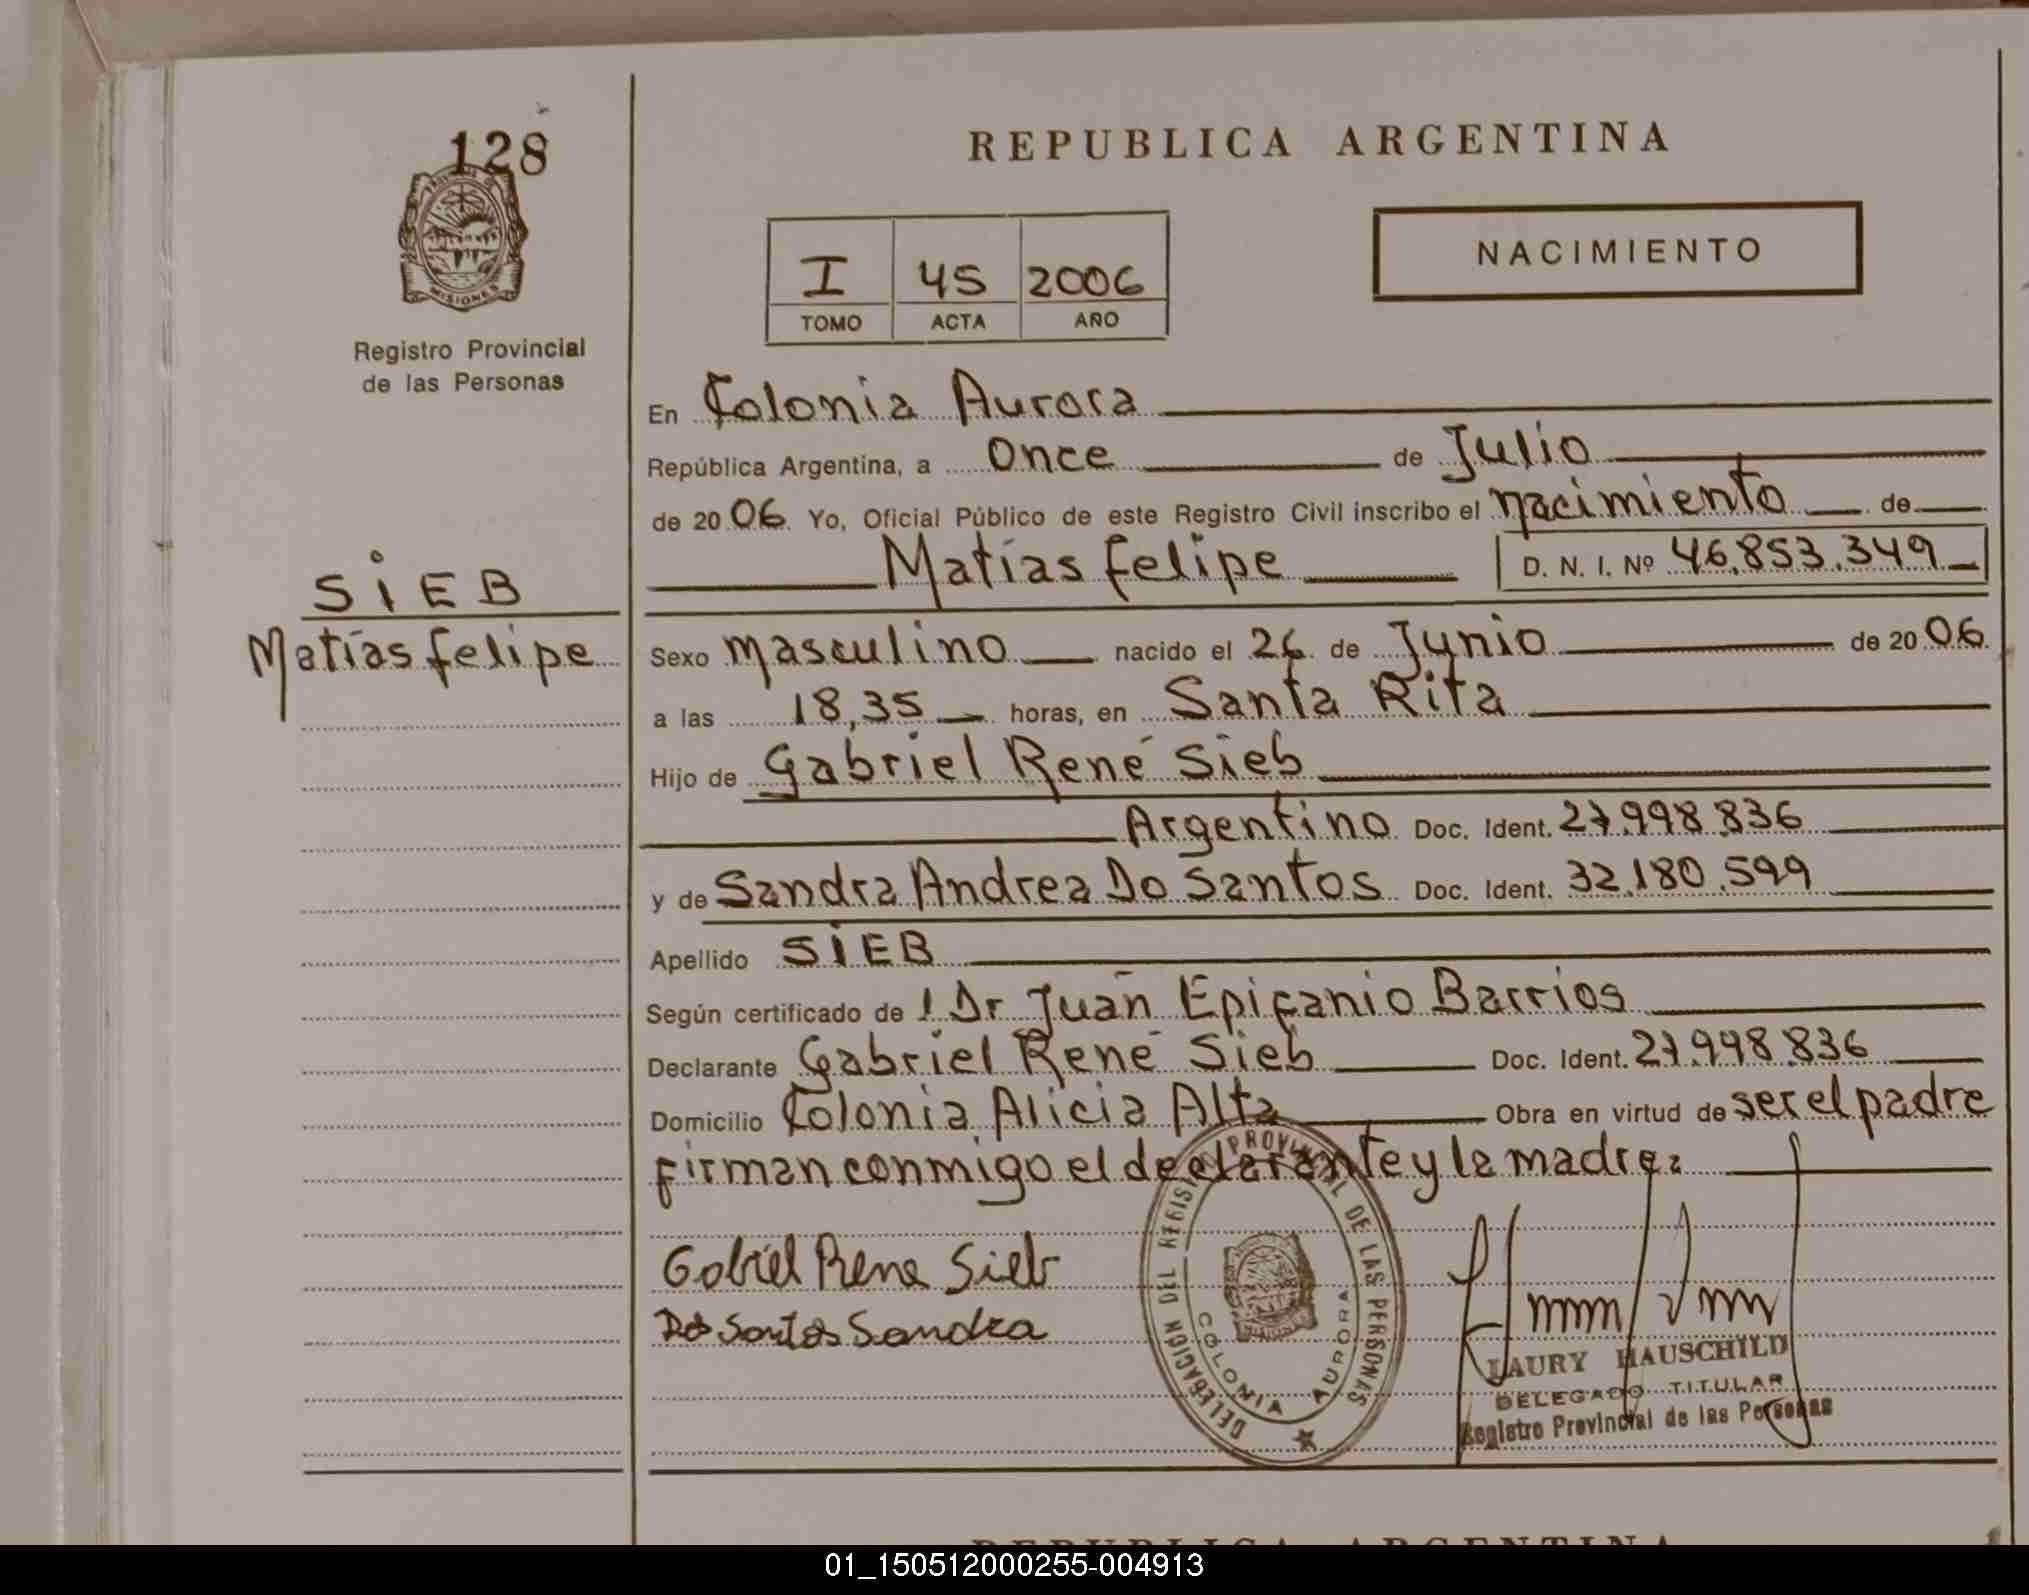 128
MISIONES
Registro Provincial
de las Personas
SIEB
Matías Felipe
REPUBLICA ARGENTINA
NACIMIENTO
I 45 2006
TOMO ACTA AÑO
En Colonia Aurora
República Argentina, a Once de Julio
de 2006. Yo, Oficial Público de este Registro Civil inscribo el nacimiento de
Matías Felipe D. N. I. Nº 46.853.349
Sexo masculino nacido el 26 de Junio de 2006.
a las 18,35 horas, en Santa Rita
Hijo de Gabriel René Sieb
Argentino Doc. Ident. 27.998.836
y de Sandra Andrea Do Santos Doc. Ident. 32.180.599
Apellido SIEB
Según certificado de l Dr Juan Epifanio Barrios
Declarante Gabriel René Sieb Doc. Ident. 27.998.836
Domicilio Colonia Alicia Alta Obra en virtud de ser el padre
firman conmigo el declarante y la madre
Gabriel Rene Sieb
Dos Santos Sandra
DELEGACION DEL REGISTRO PROVINCIAL DE LAS PERSONAS
COLONIA AURORA
LAURY HAUSCHILD
DELEGADO TITULAR
Registro Provincial de las Personas
REPUBLICA ARGENTINA
01_150512000255-004913